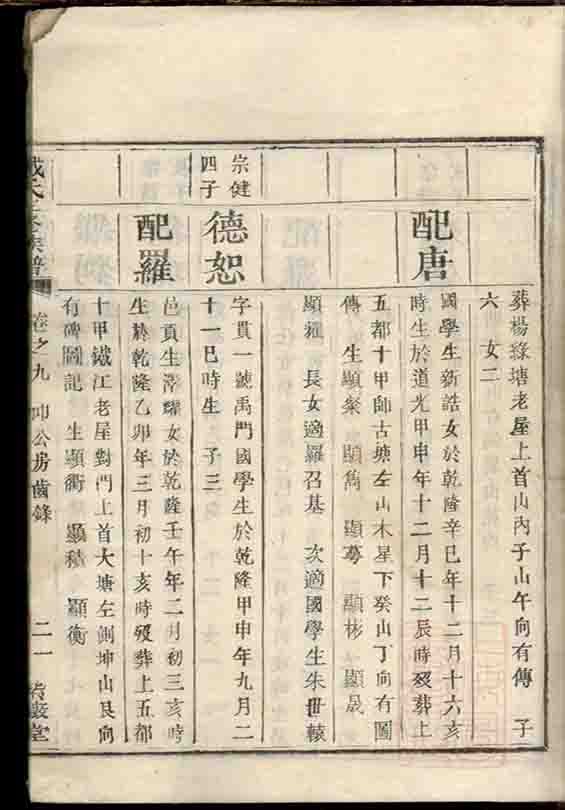 葬楊綠塘老屋上首山內子山午向有傳　子
六　女二
配唐
國學生新誥女於乾隆辛巳年十二月十六亥
時生於道光甲申年十二月十二辰時歿葬上
五都十甲師古塘左山木星下癸山丁向有圖
傳　生顯粲　顯雋　顯蕚　顯彬　顯晟
顯　長女適羅召基　次適國學生朱世轅
宗健
四子
德恕
字貫一號禹門國學生於乾隆甲申年九月二
十一巳時生　子三
配羅
邑頁生澤耀女於乾隆壬午年二月初三亥時
生於乾隆乙卯年三月初十亥時歿葬上五都
十甲鐵江老屋對門上首大塘左側坤山艮向
有碑圖記　生顯衢　顯積　顯衡
氏族譜
卷之九　公房齒錄　二一　堂